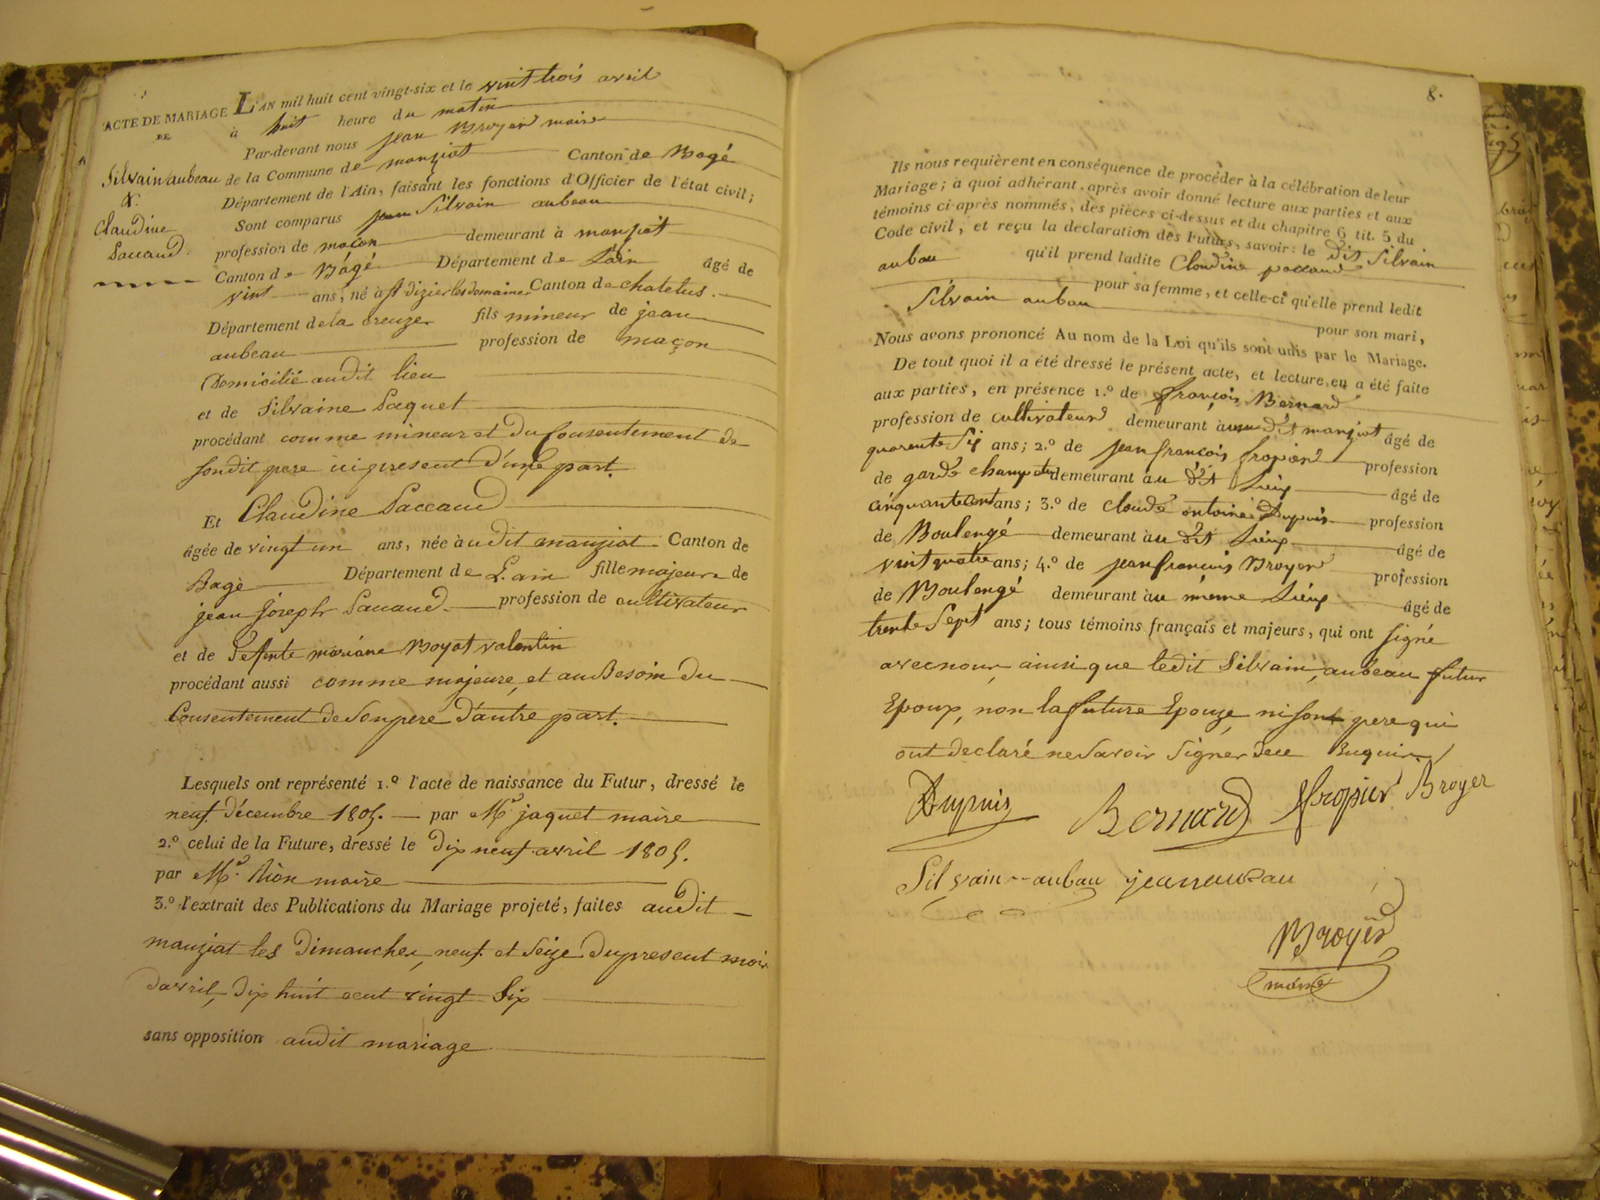 ACTE DE MARIAGE
DE
Silvain aubeau
&
Claudine
Paccaud
L'AN mil huit cent vingt-six et le vint trois avril
à huit heure du matin
Par-devant nous jean Broyer maire
de la Commune de manziat Canton de Bagé
Département de l'Ain, faisant les fonctions d'Officier de l'état civil;
Sont comparus Silvain aubeau
profession de maçon demeurant à manziat
Canton de Bágé Département de Lain âgé de
vint ans, né à St dizier les domaines Canton de chatelus
Département de la creuze fils mineur de jean
aubeau profession de maçon
Domicilié audit lieu
et de Silvaine Paquet
procédant comme mineur et du Consentement de
sondit pere ici present d'une part.
Et Claudine Paccaud
âgée de vingt un ans, née àudit manziat Canton de
Bagé Département de L'ain fille majeure de
jean joseph Paccaud profession de cultivateur
et de Deffunte mariane Boyat valentin
procédant aussi comme majeure, et au Besoin du
Consentement de Son pere D'autre part.
Lesquels ont représenté 1.º l'acte de naissance du Futur, dressé le
neuf Décembre 1805. par Mr jaquet maire
2.º celui de la Future, dressé le Dix neuf avril 1805.
par Mr. Rion maire
3.º l'extrait des Publications du Mariage projeté, faites audit
manziat les Dimanches, neuf et Seize du present mois
d'avril, Dix huit cent vingt Six
sans opposition audit mariage
8.
Ils nous requièrent en conséquence de procéder à la célébration de leur
Mariage; à quoi adhérant, après avoir donné lecture aux parties et aux
témoins ci-après nommés, des pièces ci-dessus et du chapitre 6 tit. 5 du
Code civil, et reçu la déclaration des Futurs, savoir: le dit Silvain
aubau qu'il prend ladite Cloudine paccaud
pour sa femme, et celle-ci qu'elle prend ledit
Silvain aubau pour son mari,
Nous avons prononcé Au nom de la Loi qu'ils sont unis par le Mariage.
De tout quoi il a été dressé le présent acte, et lecture en a été faite
aux parties, en présence 1.º de françois Bernard
profession de cultivateur demeurant àu dit manziat âgé de
quarente Six ans; 2.º de jean françois fropier profession
de garde champetre demeurant àu dit Lieux âgé de
cinquante ans; 3.º de cloude antoine Dupuis profession
de Boulengé demeurant àu dit Lieux âgé de
vint quatre ans; 4.º de jean francois Broyer profession
de Boulengé demeurant àu même Lieux âgé de
trente Sept ans; tous témoins français et majeurs, qui ont signé
avec nous, ainsi que ledit Silvain, aubeau futur
Epoux, non la future Epouze ni Son pere qui
ont declaré ne Savoir Signer de ce Enquis
Dupuis Bernard fropier Broyer
Silvain aubau jean aubau
Broyer
maire